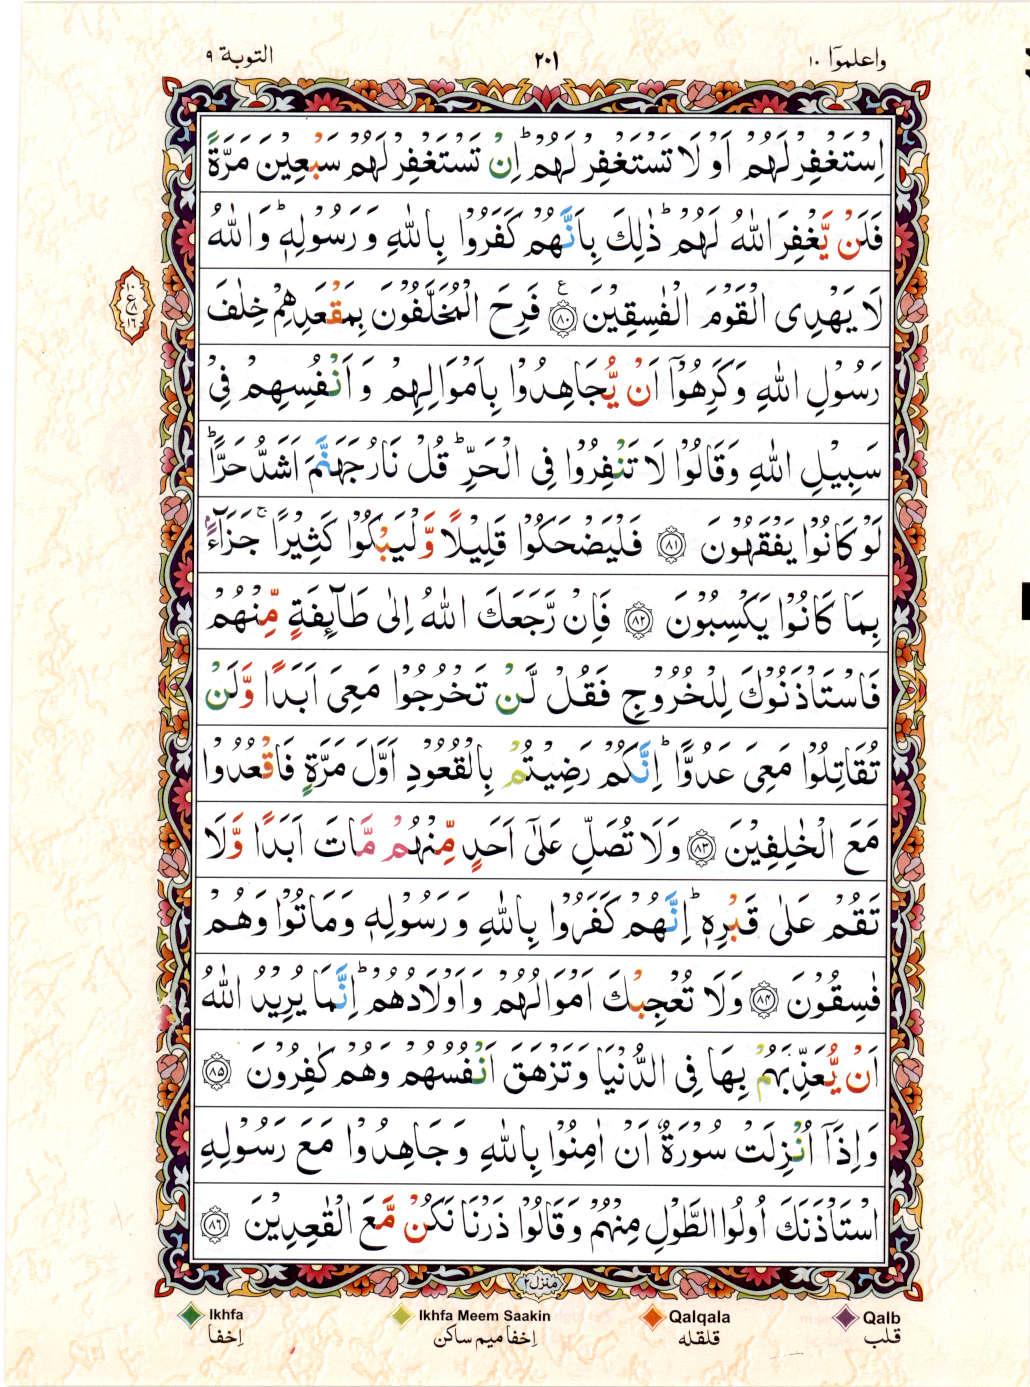 واعلموٓا ١٠
٢٠١
التوبة ٩
اِسۡتَغۡفِرۡ لَهُمۡ اَوۡ لَا تَسۡتَغۡفِرۡ لَهُمۡ ؕ اِنۡ تَسۡتَغۡفِرۡ لَهُمۡ سَبۡعِيۡنَ مَرَّةً
فَلَنۡ يَّغۡفِرَ اللّٰهُ لَهُمۡ ؕ ذٰ لِكَ بِاَنَّهُمۡ كَفَرُوۡا بِاللّٰهِ وَ رَسُوۡلِهٖ ؕ وَاللّٰهُ
لَا يَهۡدِى الۡقَوۡمَ الۡفٰسِقِيۡنَ ع ﴿۸۰﴾ فَرِحَ الۡمُخَلَّفُوۡنَ بِمَقۡعَدِهِمۡ خِلٰفَ
رَسُوۡلِ اللّٰهِ وَكَرِهُوۡۤا اَنۡ يُّجَاهِدُوۡا بِاَمۡوَالِهِمۡ وَ اَنۡفُسِهِمۡ فِىۡ
سَبِيۡلِ اللّٰهِ وَقَالُوۡا لَا تَنۡفِرُوۡا فِى الۡحَـرِّ ؕ قُلۡ نَارُ جَهَـنَّمَ اَشَدُّ حَرًّا ؕ
لَوۡ كَانُوۡا يَفۡقَهُوۡنَ ﴿۸۱﴾ فَلۡيَـضۡحَكُوۡا قَلِيۡلًا وَّلۡيَبۡكُوۡا كَثِيۡرًا ۚ جَزَآءًۢ
بِمَا كَانُوۡا يَكۡسِبُوۡنَ ﴿۸۲﴾ فَاِنۡ رَّجَعَكَ اللّٰهُ اِلٰى طَآٮِٕفَةٍ مِّنۡهُمۡ
فَاسۡتَاۡذَنُوۡكَ لِلۡخُرُوۡجِ فَقُلْ لَّنۡ تَخۡرُجُوۡا مَعِىَ اَبَدًا وَّلَنۡ
تُقَاتِلُوۡا مَعِىَ عَدُوًّا ؕ اِنَّكُمۡ رَضِيۡتُمۡ بِالۡقُعُوۡدِ اَوَّلَ مَرَّةٍ فَاقۡعُدُوۡا
مَعَ الۡخٰلِفِيۡنَ ﴿۸۳﴾ وَلَا تُصَلِّ عَلٰٓى اَحَدٍ مِّنۡهُمۡ مَّاتَ اَبَدًا وَّلَا
تَقُمۡ عَلٰى قَبۡرِهٖ ؕ اِنَّهُمۡ كَفَرُوۡا بِاللّٰهِ وَ رَسُوۡلِهٖ وَمَاتُوۡا وَهُمۡ
فٰسِقُوۡنَ ﴿۸۴﴾ وَلَا تُعۡجِبۡكَ اَمۡوَالُهُمۡ وَاَوۡلَادُهُمۡ ؕ اِنَّمَا يُرِيۡدُ اللّٰهُ
اَنۡ يُّعَذِّبَهُمۡ بِهَا فِى الدُّنۡيَا وَتَزۡهَقَ اَنۡفُسُهُمۡ وَهُمۡ كٰفِرُوۡنَ ﴿۸۵﴾
وَاِذَاۤ اُنۡزِلَتۡ سُوۡرَةٌ اَنۡ اٰمِنُوۡا بِاللّٰهِ وَجَاهِدُوۡا مَعَ رَسُوۡلِهِ
اسۡتَاۡذَنَكَ اُولُوا الطَّوۡلِ مِنۡهُمۡ وَقَالُوۡا ذَرۡنَا نَكُنۡ مَّعَ الۡقٰعِدِيۡنَ ﴿۸۶﴾
١٠
ع ٨
١٦
منزل ٢
Ikhfa
Ikhfa Meem Saakin
Qalqala
Qalb
اِخفا
اِخفا ميم ساكن
قلقله
قلب